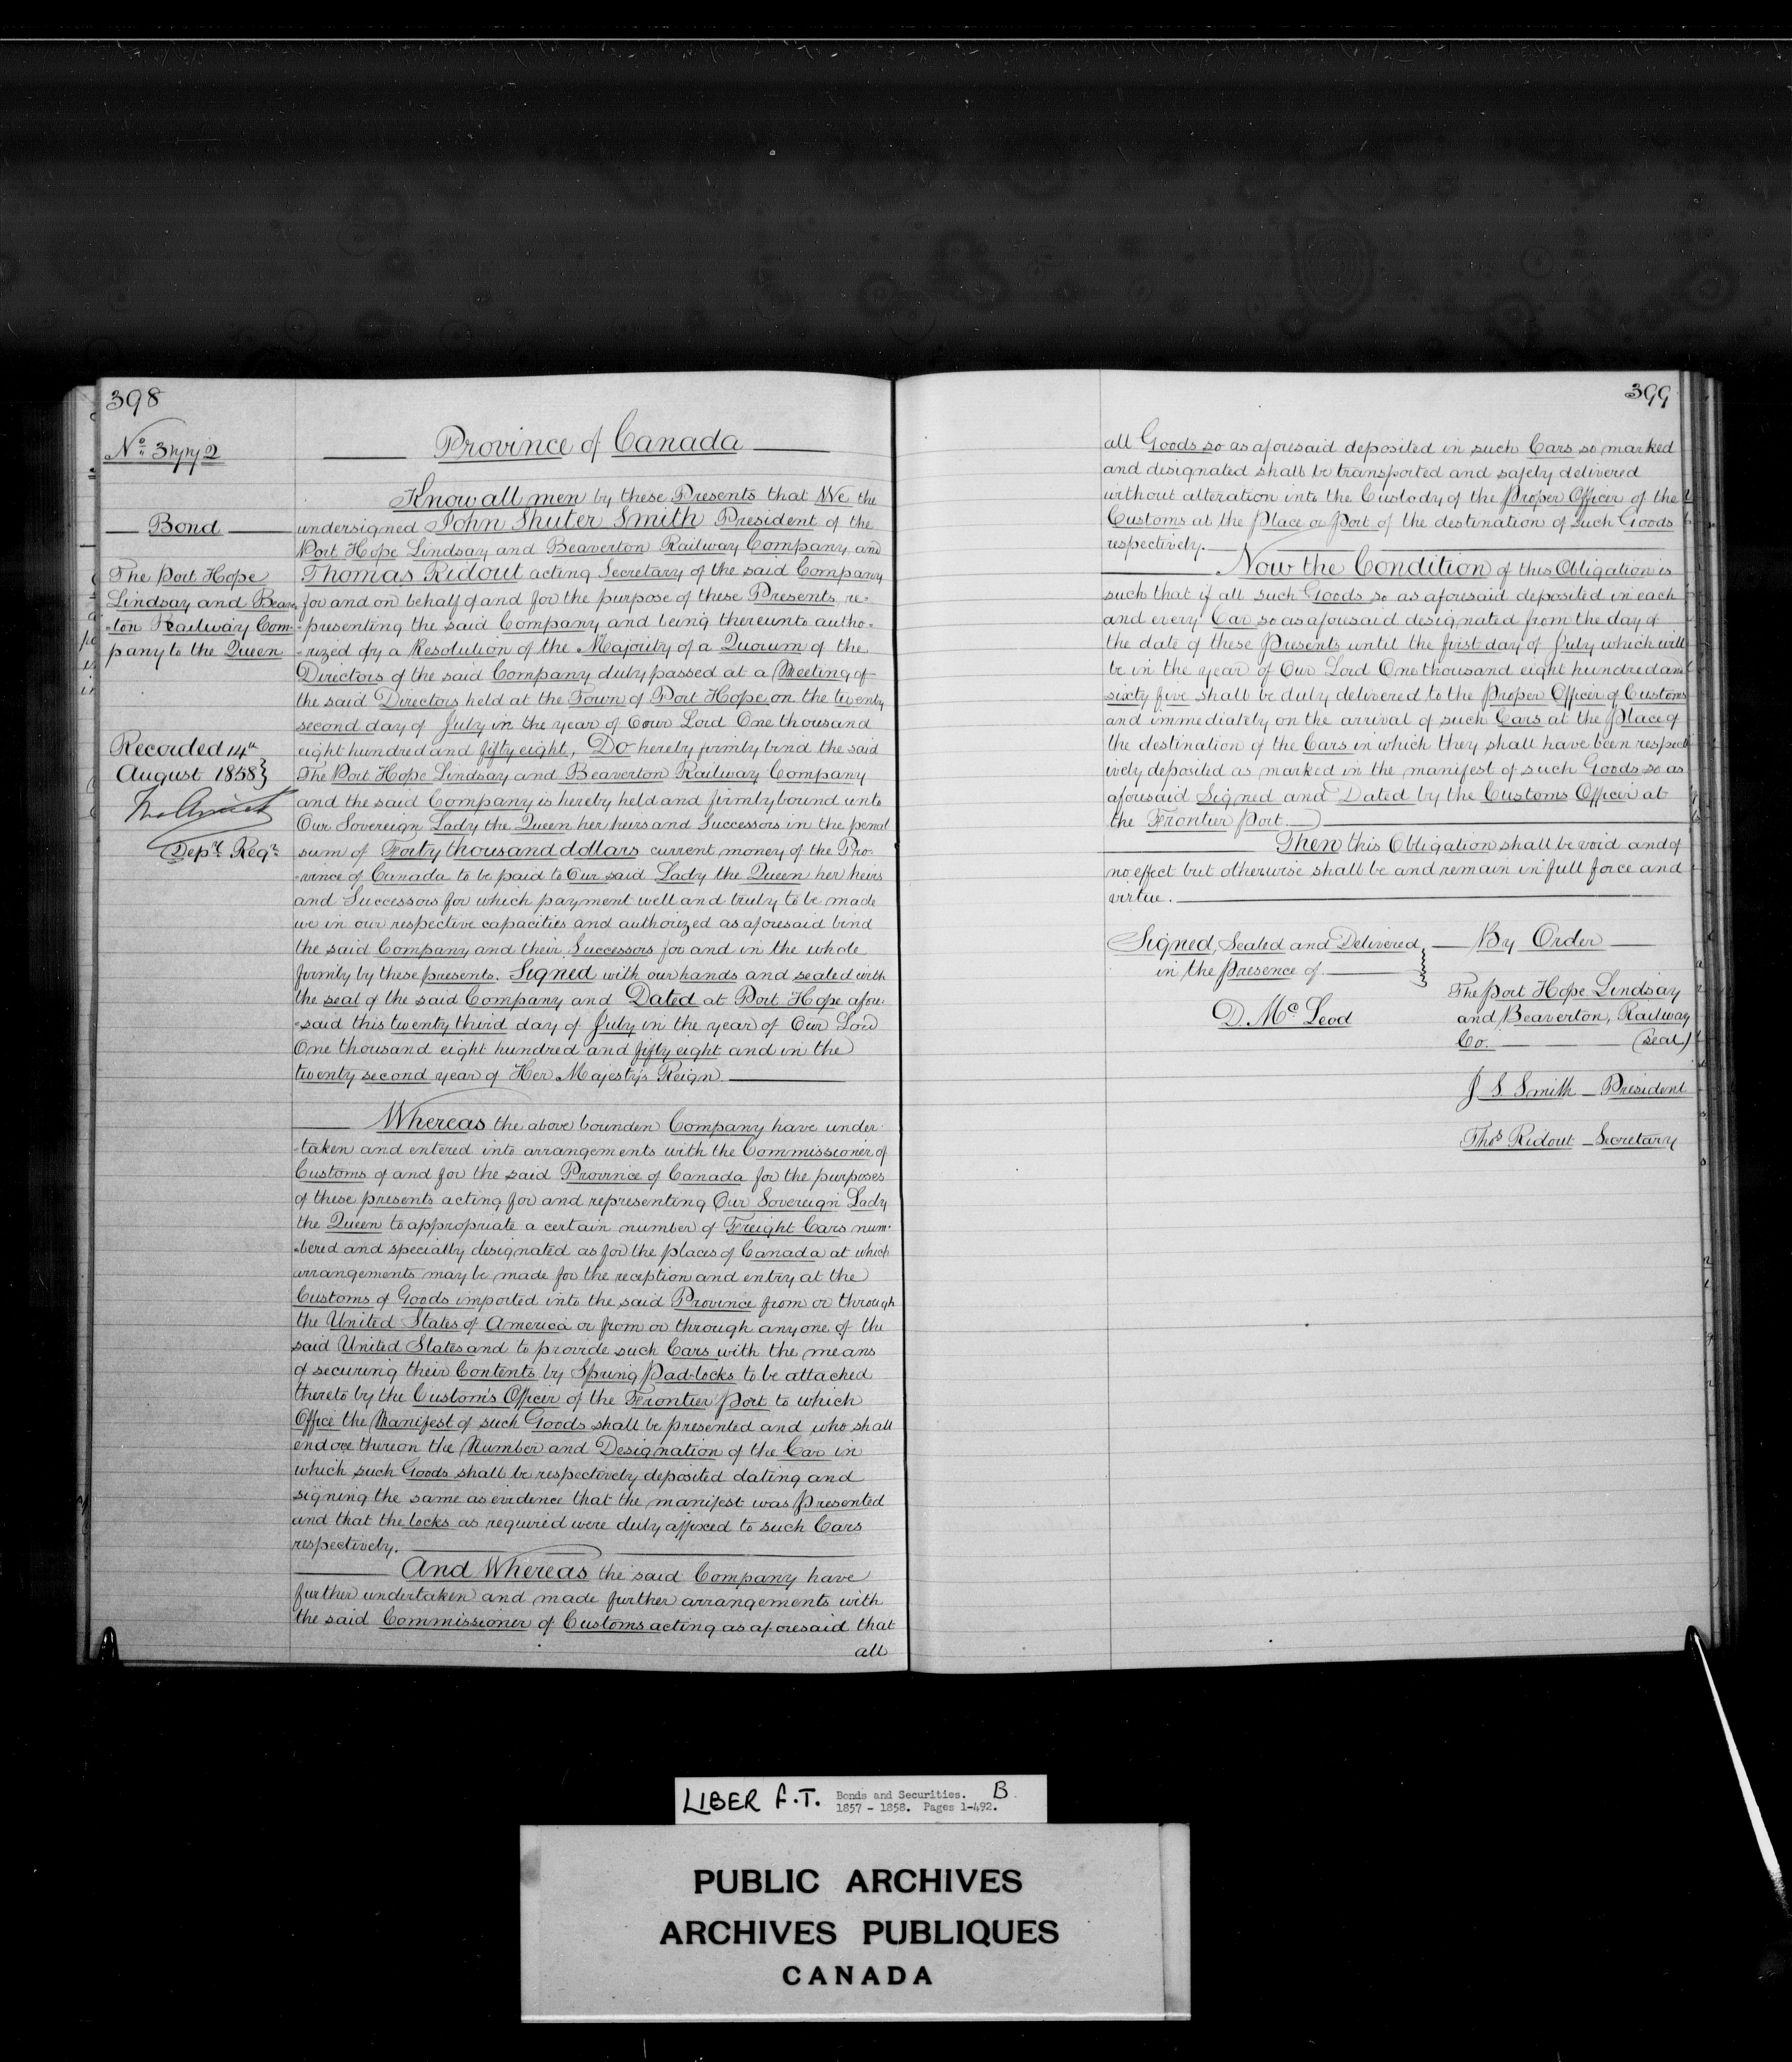 398
No. 3772
Bond
The Port Hope
Lindsay and Beaver-
-ton Railway Com-
pany to the Queen
Recorded 14th
August 1858
Depy. Regr.
Province of Canada
Know all men by these Presents that We the
undersigned John Shuter Smith President of the
Port Hope Lindsay and Beaverton Railway Company and
Thomas Ridout acting Secretary of the said Company
for and on behalf of and for the purpose of these Presents re-
-presenting the said Company and being thereunto autho-
-rized by a Resolution of the Majority of a Quorum of the
Directors of the said Company duly passed at a Meeting of
the said Directors held at the Town of Port Hope on the twenty
second day of July in the year of Our Lord One thousand
eight hundred and fifty eight, Do hereby firmly bind the said
The Port Hope Lindsay and Beaverton Railway Company
and the said Company is hereby held and firmly bound unto
Our Sovereign Lady the Queen her heirs and Successors in the penal
sum of Forty thousand dollars current money of the Pro-
-vince of Canada to be paid to Our said Lady the Queen her heirs
and Successors for which payment well and truly to be made
we in our respective capacities and authorized as aforesaid bind
the said Company and their Successors for and in the whole
firmly by these presents. Signed with our hands and sealed with
the seal of the said Company and Dated at Port Hope afore-
-said this twenty third day of July in the year of Our Lord
One thousand eight hundred and fifty eight and in the
twenty second year of Her Majesty's Reign
Whereas the above bounden Company have under-
-taken and entered into arrangements with the Commissioner of
Customs of and for the said Province of Canada for the purposes
of these presents acting for and representing Our Sovereign Lady
the Queen to appropriate a certain number of Freight Cars num-
-bered and specially designated as for the places of Canada at which
arrangements may be made for the reception and entry at the
Customs of Goods imported into the said Province from or through
the United States of America or from or through any one of the
said United States and to provide such Cars with the means
of securing their Contents by Spring Pad-locks to be attached
thereto by the Custom's Officer of the Frontier Port to which
Office the Manifest of such Goods shall be presented and who shall
endoce thereon the Number and Designation of the Car in
which such Goods shall be respectively deposited dating and
signing the same as evidence that the manifest was Presented
and that the locks as required were duly affixed to such Cars
respectively.
And Whereas the said Company have
further undertaken and made further arrangements with
the said Commissioner of Customs acting as aforesaid that
all
399
all Goods so as aforesaid deposited in such Cars so marked
and designated shall be transported and safely delivered
without alteration into the Custody of the Proper Officer of the
Customs at the Place or Port of the destination of such Goods
respectively.
Now the Condition of this Obligation is
such that if all such Goods so as aforesaid deposited in each
and every Car so as aforesaid designated from the day of
the date of these Presents until the first day of July which will
be in the year of Our Lord One thousand eight hundred and
sixty five shall be duly delivered to the Proper Officer of Customs
and immediately on the arrival of such Cars at the Place of
the destination of the Cars in which they shall have been respect-
ively deposited as marked in the manifest of such Goods so as
aforesaid Signed and Dated by the Customs Officer at
the Frontier Port.
Then this Obligation shall be void and of
no effect but otherwise shall be and remain in full force and
virtue.
Signed, Sealed and Delivered
in the Presence of
D. Mc Leod
By Order
The Port Hope Lindsay
and Beaverton, Railway
Co. (seal)
J. S. Smith President
Thos Ridout Secretary
LIBER F.T. Bonds and Securities. B
1857 - 1858. Pages 1-492.
PUBLIC ARCHIVES
ARCHIVES PUBLIQUES
CANADA